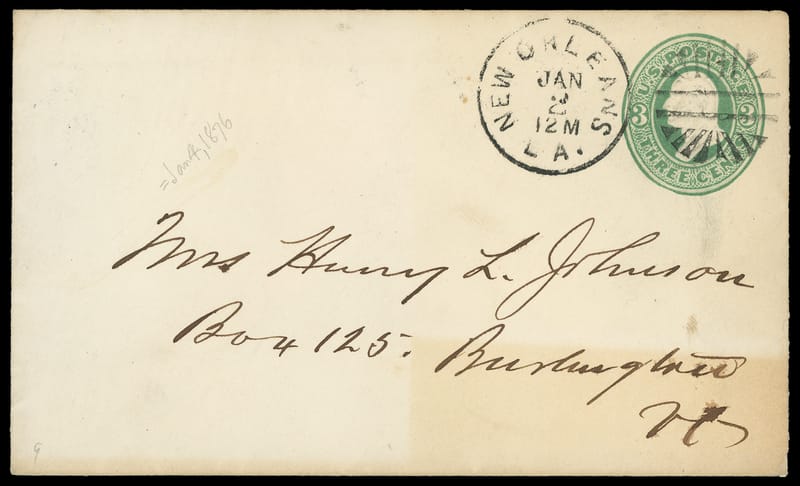 NEW ORLEANS
JAN
2
12M
LA.
U.S. POSTAGE
3 3
THREE CENTS
=Jan 4, 1876
Mrs Henry L. Johnson
Box 125. Burlington
Vt
9